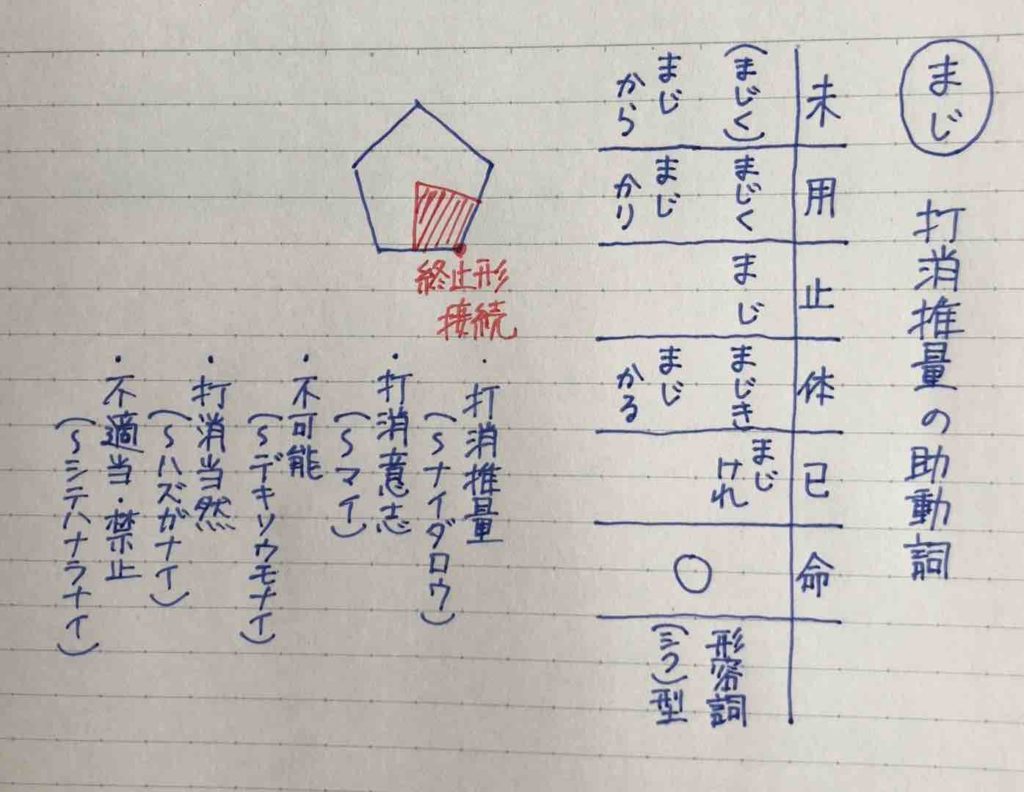 まじ 打消推量の助動詞
未 用 止 体 已 命
(まじく) まじく まじ まじき まじけれ ○ 形容詞
まじから まじかり まじかる (シク)型
終止形
接続
・打消推量
(〜ナイダロウ)
・打消意志
(〜マイ)
・不可能
(〜デキソウモナイ)
・打消当然
(〜ハズガナイ)
・不適当・禁止
(〜シテハナラナイ)